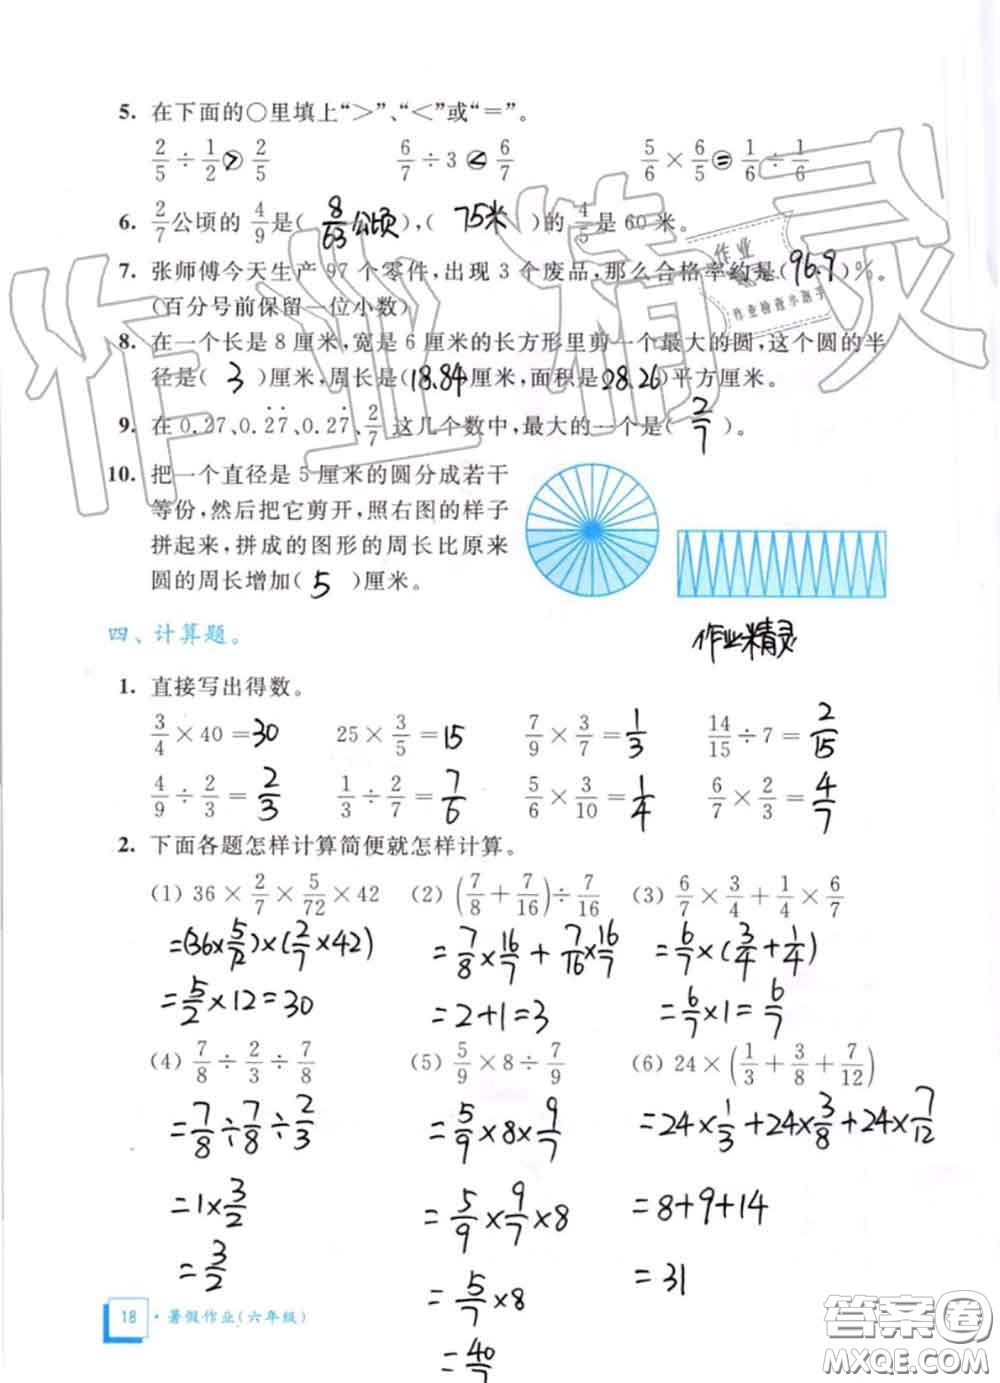 5. 在下面的○里填上“>”、“<”或“=”。
2/5 ÷ 1/2 > 2/5　6/7 ÷ 3 < 6/7　5/6 × 6/5 = 1/6 ÷ 1/6
6. 2/7公顷的 4/9 是( 8/63公顷 ),( 75米 )的 4/5 是 60 米。
7. 张师傅今天生产 97 个零件,出现 3 个废品,那么合格率约是(96.9)%。
(百分号前保留一位小数)
8. 在一个长是 8 厘米,宽是 6 厘米的长方形里剪一个最大的圆,这个圆的半
径是( 3 )厘米,周长是(18.84)厘米,面积是(28.26)平方厘米。
9. 在 0.27、0.2̇7̇、0.27̇、2/7 这几个数中,最大的一个是( 2/7 )。
10. 把一个直径是 5 厘米的圆分成若干
等份,然后把它剪开,照右图的样子
拼起来,拼成的图形的周长比原来
圆的周长增加( 5 )厘米。
作业精灵
四、计算题。
1. 直接写出得数。
3/4 × 40 = 30　25 × 3/5 = 15　7/9 × 3/7 = 1/3　14/15 ÷ 7 = 2/15
4/9 ÷ 2/3 = 2/3　1/3 ÷ 2/7 = 7/6　5/6 × 3/10 = 1/4　6/7 × 2/3 = 4/7
2. 下面各题怎样计算简便就怎样计算。
(1) 36 × 2/7 × 5/72 × 42　(2) (7/8 + 7/16) ÷ 7/16　(3) 6/7 × 3/4 + 1/4 × 6/7
=(36×5/72)×(2/7×42)　=7/8×16/7+7/16×16/7　=6/7×(3/4+1/4)
=5/2×12=30　=2+1=3　=6/7×1=6/7
(4) 7/8 ÷ 2/3 ÷ 7/8　(5) 5/9 × 8 ÷ 7/9　(6) 24 × (1/3 + 3/8 + 7/12)
=7/8÷7/8÷2/3　=5/9×8×9/7　=24×1/3+24×3/8+24×7/12
=1×3/2　=5/9×9/7×8　=8+9+14
=3/2　=5/7×8　=31
=40/7
18 · 暑假作业(六年级)
作业精灵
作业
作业检查小助手
答案圈
MXQE.COM